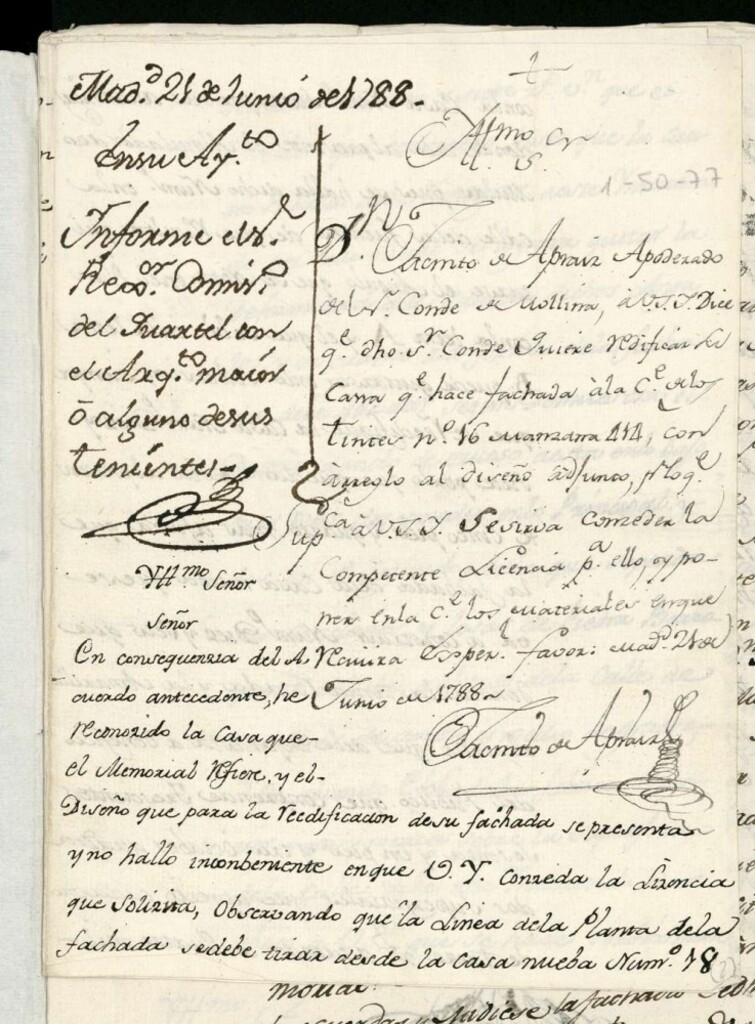 Mad.d 21 de Junio de 1788.
En su Ay.to
Informe el S.r
Rex.or Comis.o
del Quartel con
el Arq.to maior
ó alguno de sus
tenientes.
Yll.mo Sr
1-50-77
D.n Jacinto de Apraiz Apoderado
del S.r Conde de Mollina, à V.S.Y. Dice
q.e dho S.r Conde Quiere redificar la
Cassa q.e hace fachada à la C.e de los
tintes n.o 16 Manzana 414, con
àrreglo al diseño àdjunto, p.r lo q.e
Sup.ca à V.S.Y. Se sirva Conzeder la
Competente Licencia p.a ello, y po-
ner en la C.e los Materiales en que
reciuira Esper.l favor: Mad.d 21 de
Junio de 1788
Jacinto de Apraiz
Yll.mo Señor
Señor
En consequenzia del A-
cuerdo antecedente, he
reconozido la Casa que
el Memorial refiere, y el
Diseño que para la reedificacion de su fachada se presenta
y no hallo inconbeniente en que V. Y. Conzeda la Lizencia
que Solizita, Observando que la Linea de la Planta de la
fachada se debe tirar desde la Casa nueba Num.o 18